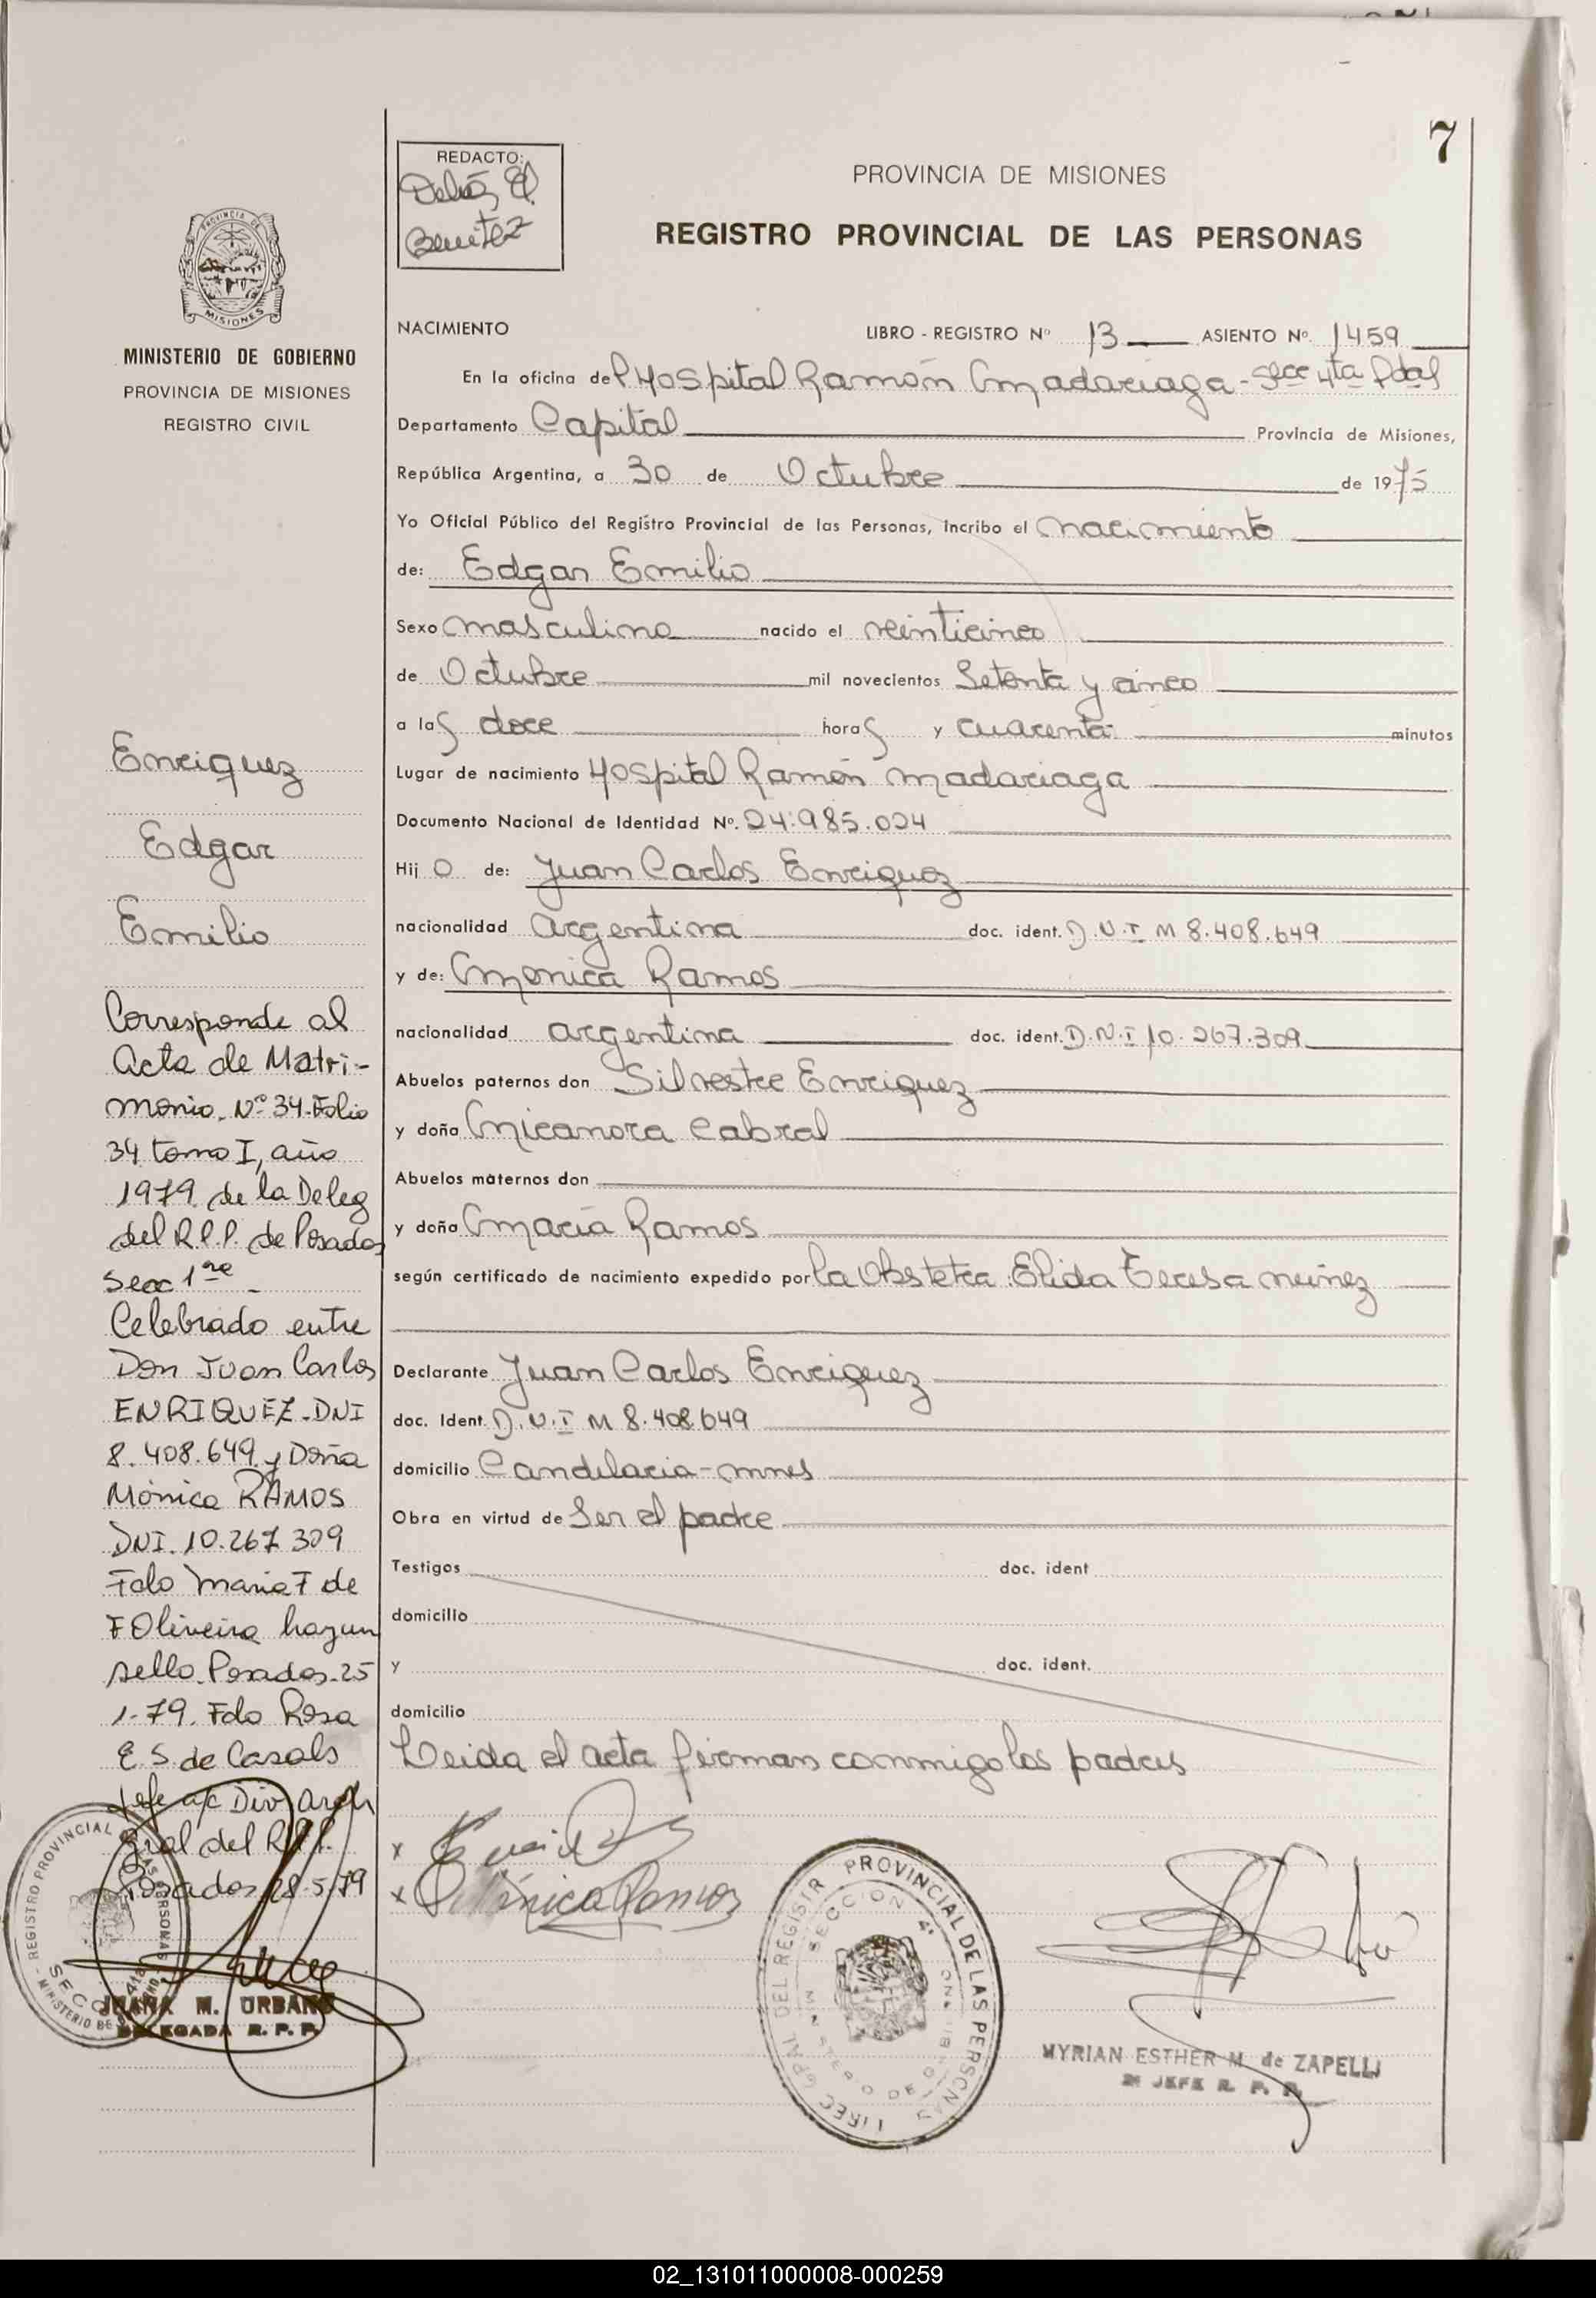 7
REDACTO:
Benitez
PROVINCIA DE MISIONES
REGISTRO PROVINCIAL DE LAS PERSONAS
MISIONES
MINISTERIO DE GOBIERNO
PROVINCIA DE MISIONES
REGISTRO CIVIL
NACIMIENTO LIBRO - REGISTRO Nº 13 ASIENTO Nº 1459
En la oficina del Hospital Ramón Madariaga - Secc 4ta Pdas
Departamento Capital Provincia de Misiones,
República Argentina, a 30 de Octubre de 1975
Yo Oficial Público del Registro Provincial de las Personas, incribo el nacimiento
de: Edgar Emilio
Sexo masculino nacido el veinticinco
de Octubre mil novecientos Setenta y cinco
a las doce horas y cuarenta minutos
Lugar de nacimiento Hospital Ramón Madariaga
Documento Nacional de Identidad Nº. 24.985.024
Hijo de: Juan Carlos Enriquez
nacionalidad argentina doc. ident. D.N.I M 8.408.649
y de: Monica Ramos
nacionalidad argentina doc. ident. D.N.I 10.267.309
Abuelos paternos don Silvestre Enriquez
y doña Nicanora Cabral
Abuelos maternos don
y doña Maria Ramos
según certificado de nacimiento expedido por la Obstetra: Elida Teresa Nuñez
Declarante Juan Carlos Enriquez
doc. Ident. D.N.I M 8.408.649
domicilio Candelaria - Mnes
Obra en virtud de Ser el padre
Testigos doc. ident
domicilio
y doc. ident.
domicilio
Leida el acta firman conmigo los padres
x
x Mónica Ramos
Enriquez
Edgar
Emilio
Corresponde al
Acta de Matri-
monio. Nº 34. Folio
34 tomo I, año
1979 de la Deleg
del R.P.P. de Posadas
Secc 1ra -
Celebrado entre
Don Juan Carlos
ENRIQUEZ. DNI
8.408.649 y Doña
Mónica RAMOS
DNI. 10.267 309
Fdo Maria F de
F Oliveira hay un
sello. Posadas. 25
1-79. Fdo Rosa
E. S. de Casals
Jefe a/c Div Arch
Gral del R.P.P.
Posadas 28.5.79
REGISTRO PROVINCIAL DE LAS PERSONAS
JUANA M. URBANO
DELEGADA R. P. P.
DIREC GRAL DEL REGISTR PROVINCIAL DE LAS PERSONAS
SECCION 4ª
MINISTERIO DE GOBIERNO
MYRIAN ESTHER M. de ZAPELLI
2º JEFE R. P. P.
02_131011000008-000259